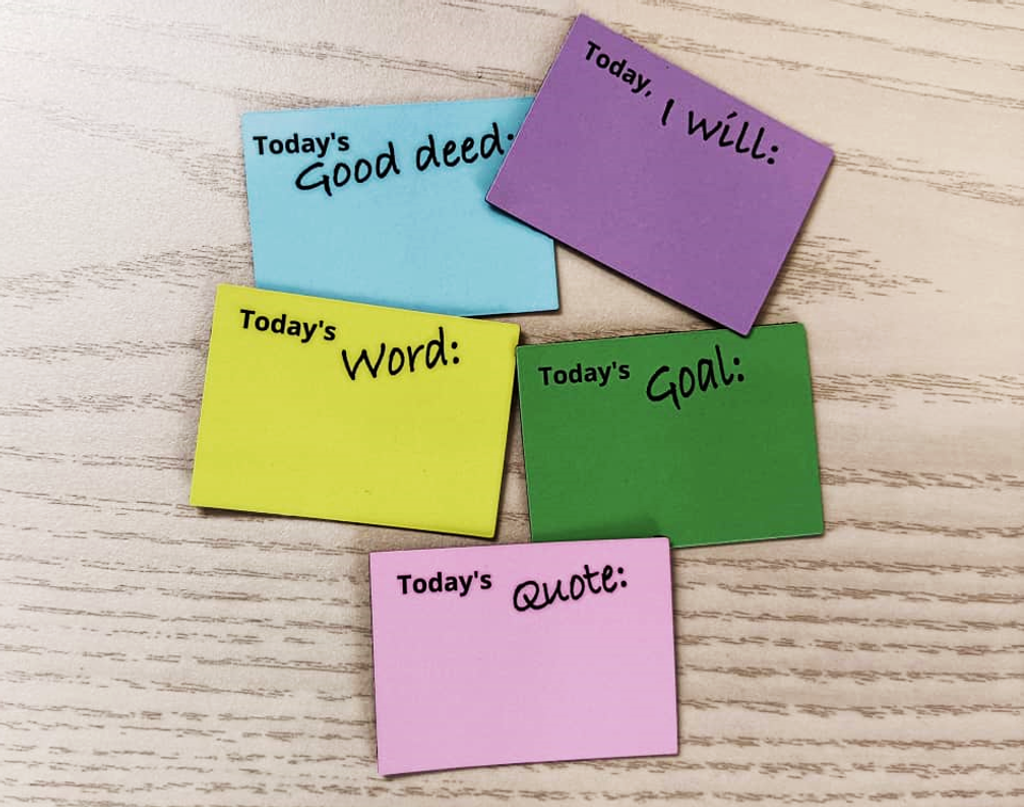 Today's
Good deed:
Today,
I will:
Today's
Word:
Today's
Goal:
Today's
Quote: